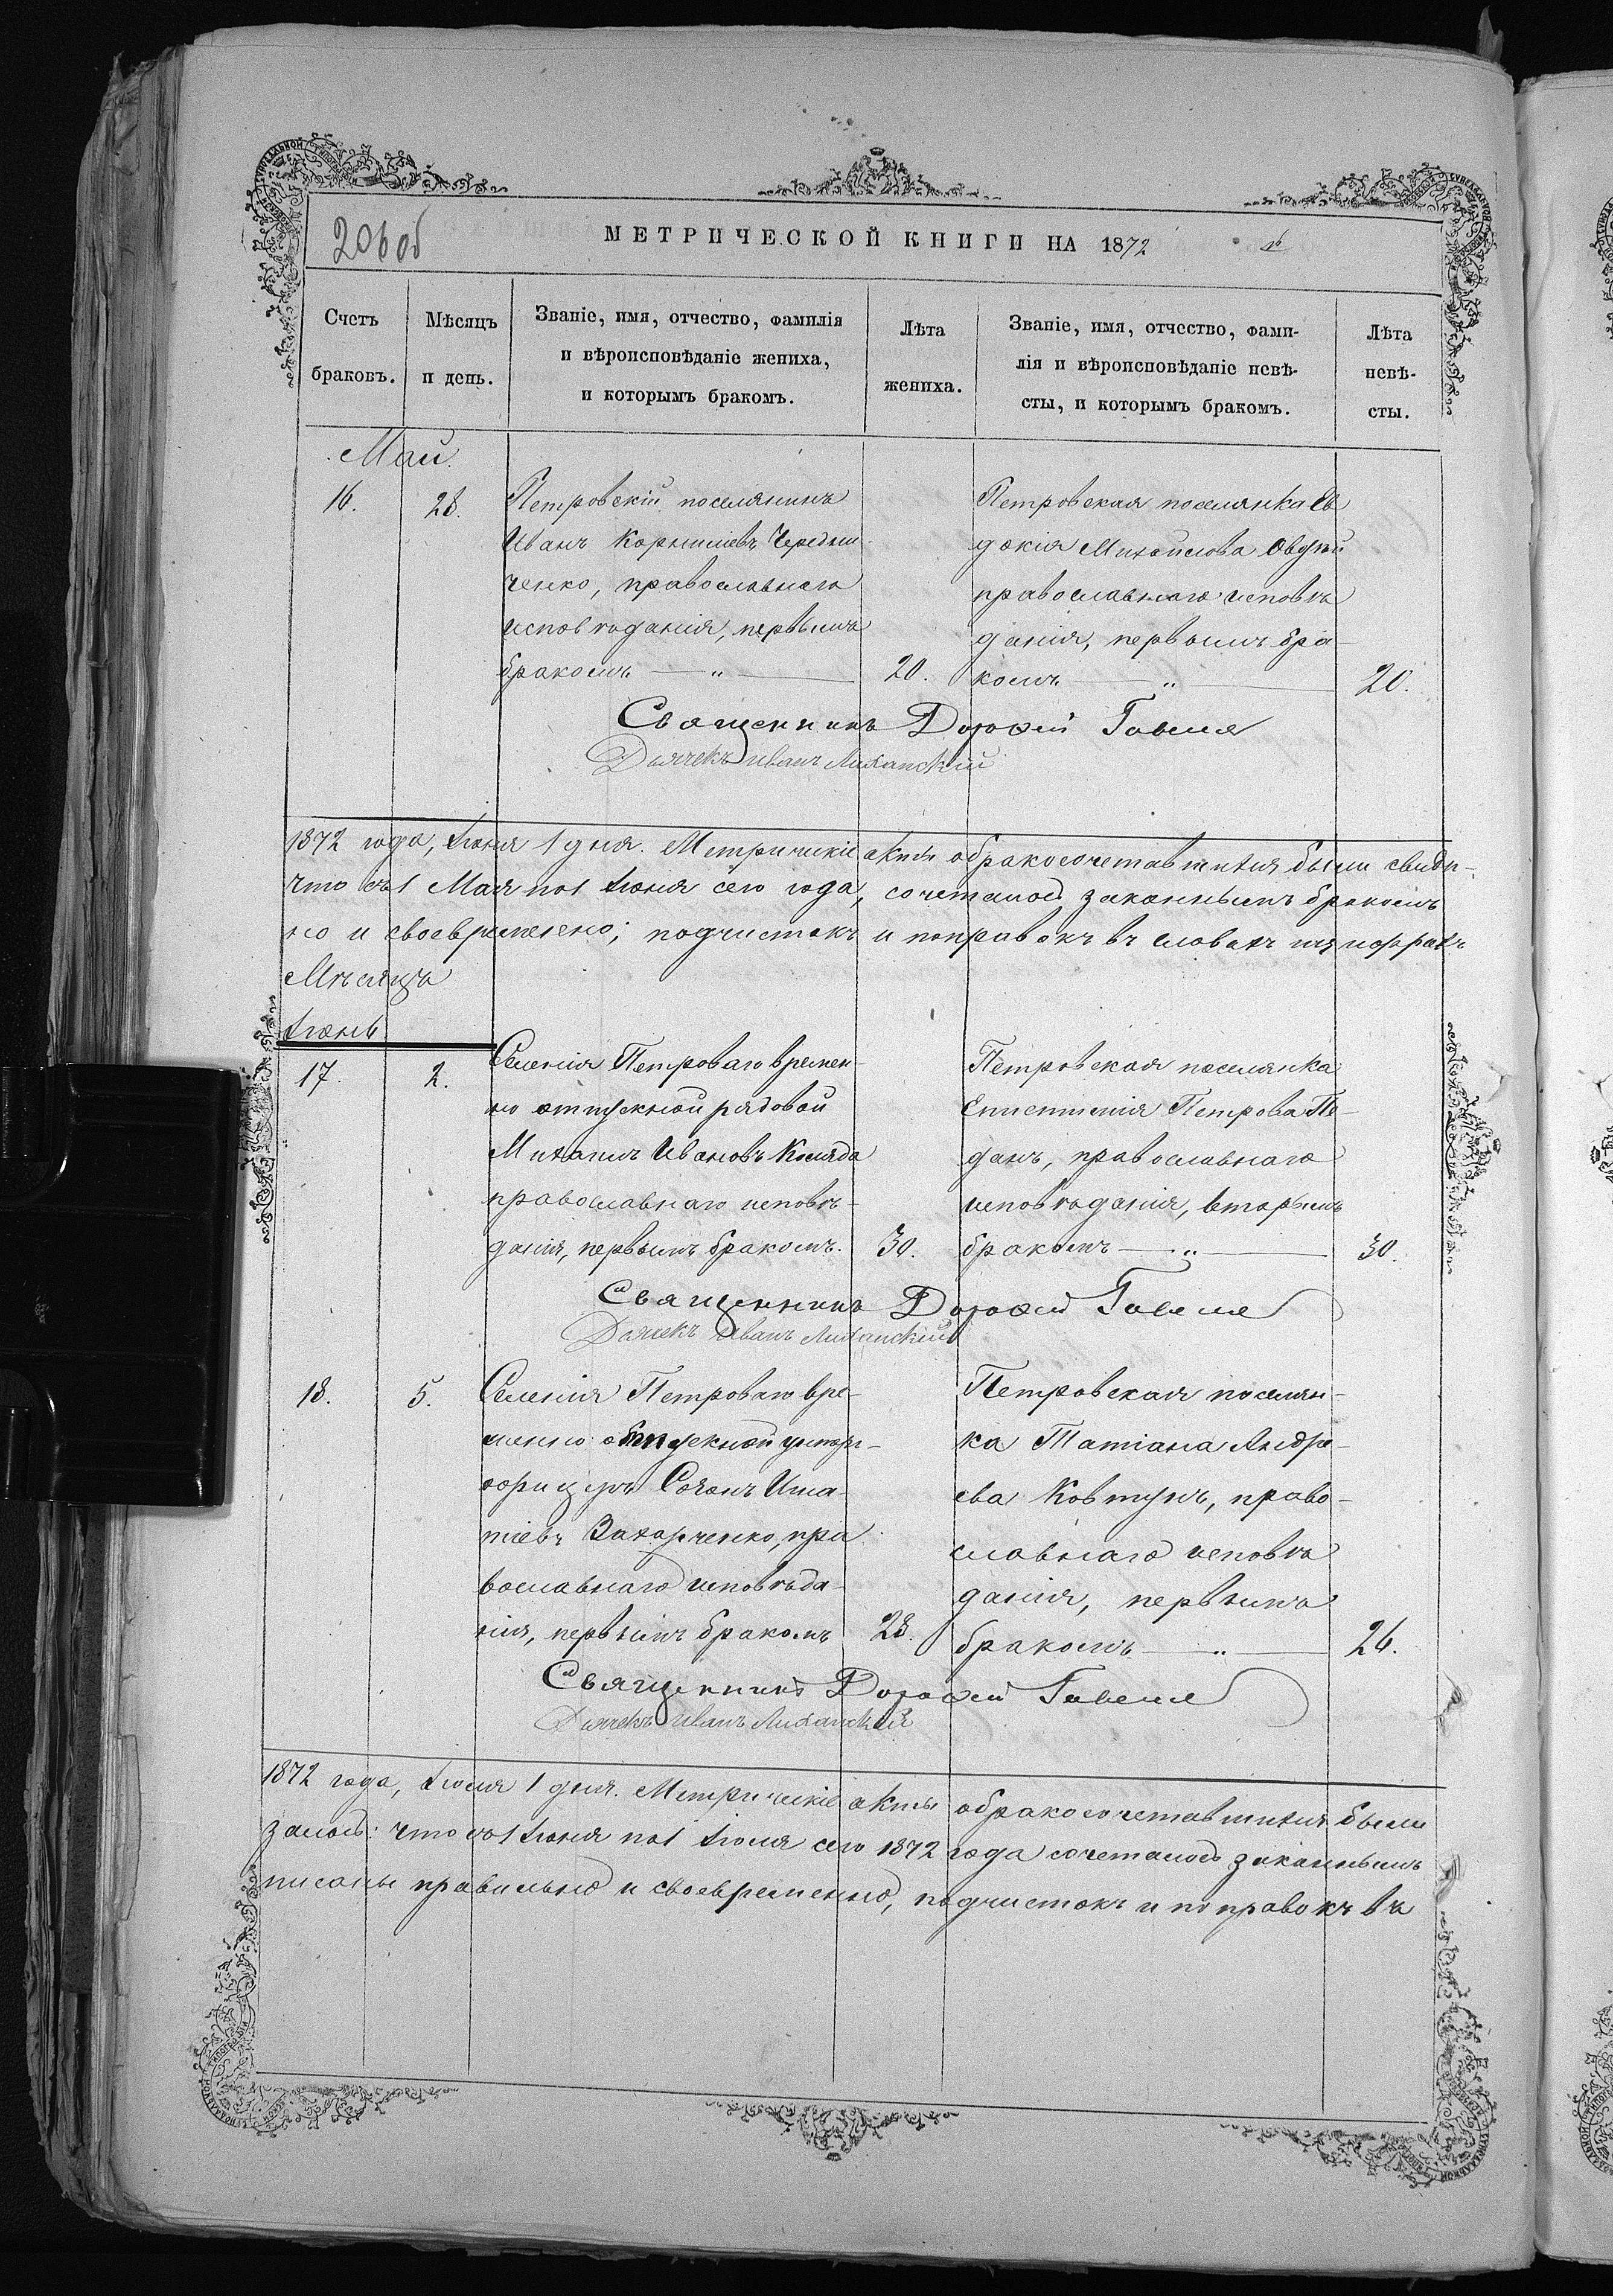 206об
МЕТРИЧЕСКОЙ КНИГИ НА 1872
Счетъ браковъ.
Мѣсяцъ и день.
Званіе, имя, отчество, фамилія
и вѣроисповѣданіе жениха,
и которымъ бракомъ.
Лѣта жениха.
Званіе, имя, отчество, фами-
лія и вѣроисповѣданіе невѣ-
сты, и которымъ бракомъ.
Лѣта невѣ-
сты.
Май.
16.
28.
Петровскій поселянинъ
Иванъ Корниліевъ Чередни-
ченко, православнаго
исповѣданія, первымъ
бракомъ — „ —
20.
Петровская поселянка Ев
докія Михайлова
православнаго исповѣ
данія, первымъ бра-
комъ — „ —
20.
Священникъ Дорофей
Дьячекъ Иванъ
1872 года, Іюня 1 дня. Метрическіе акты о бракосочетавшихся были свидѣ-
что съ 1 Мая по 1 Іюня сего года, сочеталось законнымъ бракомъ
но и своевременно; подчистокъ и поправокъ въ словахъ и цифрахъ
Мѣсяцъ
Іюнь
17.
2.
Селенія Петроваго времен-
но отпускной рядовой
Михаилъ Ивановъ Коляда
православнаго исповѣ-
данія, первымъ бракомъ.
30.
Петровская поселянка
Епистимія Петрова
православнаго
исповѣданія, вторымъ
бракомъ — „ —
30.
Священникъ Дорофей
Дьячекъ Иванъ
18.
5.
Селенія Петроваго вре-
менно отпускной унтеръ-
офицеръ Созонъ Игна-
тіевъ Захарченко, пра
вославнаго исповѣда-
нія, первымъ бракомъ
28.
Петровская поселян-
ка Татіана Андре-
ева Ковтунъ, право-
славнаго исповѣ
данія, первымъ
бракомъ — „ —
26.
Священникъ Дорофей
Дьячекъ Иванъ
1872 года, Іюля 1 дня. Метрическіе акты о бракосочетавшихся были
залось: что съ 1 Іюня по 1 Іюля сего 1872 года сочеталось законнымъ
писаны правильно и своевременно, подчистокъ и поправокъ въ